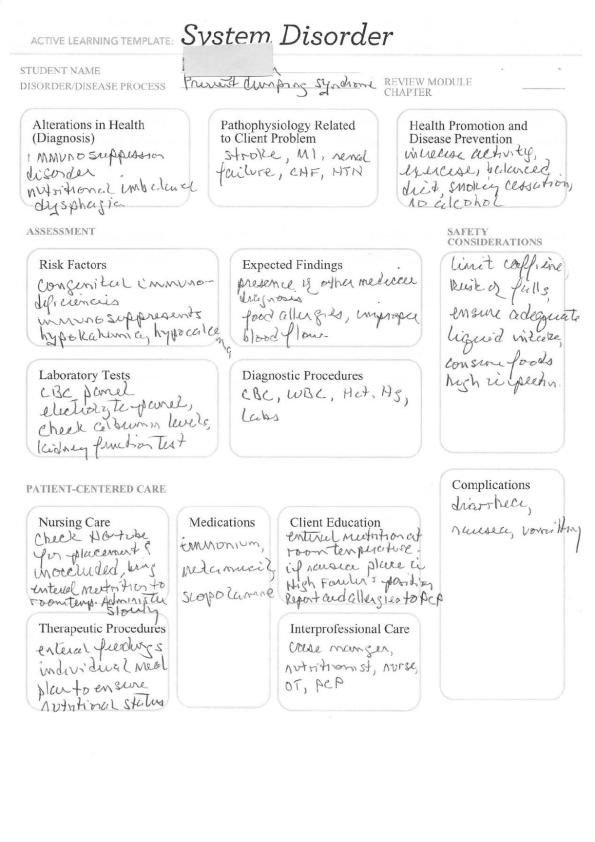 ACTIVE LEARNING TEMPLATE: System Disorder
STUDENT NAME
DISORDER/DISEASE PROCESS Prevent dumping syndrome REVIEW MODULE
CHAPTER
Alterations in Health
(Diagnosis)
immunosuppression
disorder
nutritional imbalance
dysphagia
Pathophysiology Related
to Client Problem
stroke, MI, renal
failure, CHF, HTN
Health Promotion and
Disease Prevention
increase activity,
exercise, balanced
diet, smoking cessation,
no alcohol
ASSESSMENT
SAFETY
CONSIDERATIONS
Risk Factors
congenital immuno-
deficiencies
immunosuppresents
hypokalemia, hypocalce
Expected Findings
presence of other medical
diagnosis
food allergies, improper
blood flow
limit caffeine,
Risk of falls,
ensure adequate
liquid intake,
consume foods
high in pectin.
Laboratory Tests
CBC panel
electrolyte panel,
check albumin levels,
kidney function Test
Diagnostic Procedures
CBC, WBC, Hct, Hg,
Labs
PATIENT-CENTERED CARE
Complications
diarrhea,
nausea, vomitting
Nursing Care
Check NG tube
for placement &
unoccluded, bring
enteral nutrition to
room temp. Administer
slowly
Medications
immonium,
metamucil,
scopolamine
Client Education
enteral nutrition at
room temperature.
if nausea place in
High Fowler's position
Report and allergies to PCP
Therapeutic Procedures
enteral feedings
individual meal
plan to ensure
nutritional status
Interprofessional Care
case manger,
nutritionist, nurse,
OT, PCP